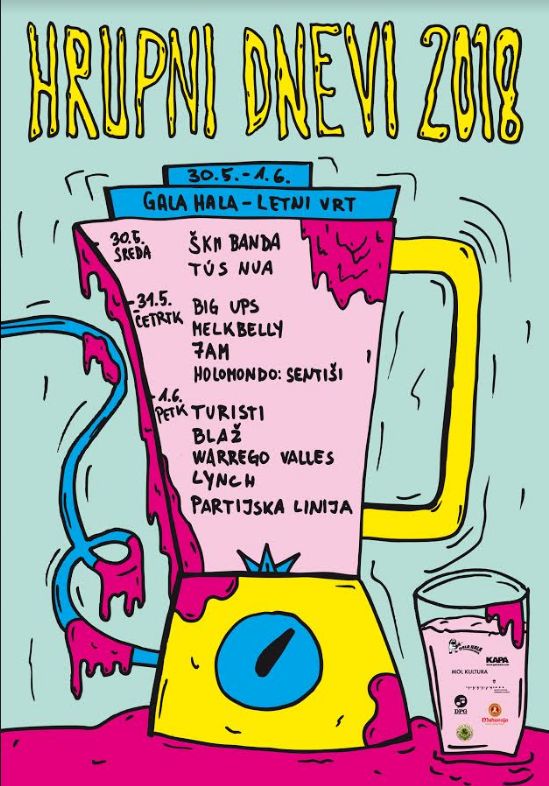 HRUPNI DNEVI 2018
30.5.-1.6.
GALA HALA - LETNI VRT
30.5.
SREDA
ŠKM BANDA
TÚS NUA
31.5.
ČETRTK
BIG UPS
MELKBELLY
7AM
HOLOMONDO: SENTIŠI
1.6.
PETK
TURISTI
BLAŽ
WARREGO VALLES
LYNCH
PARTIJSKA LINIJA
GALA HALA
KAPA
MOL KULTURA
DPG
Maharaja